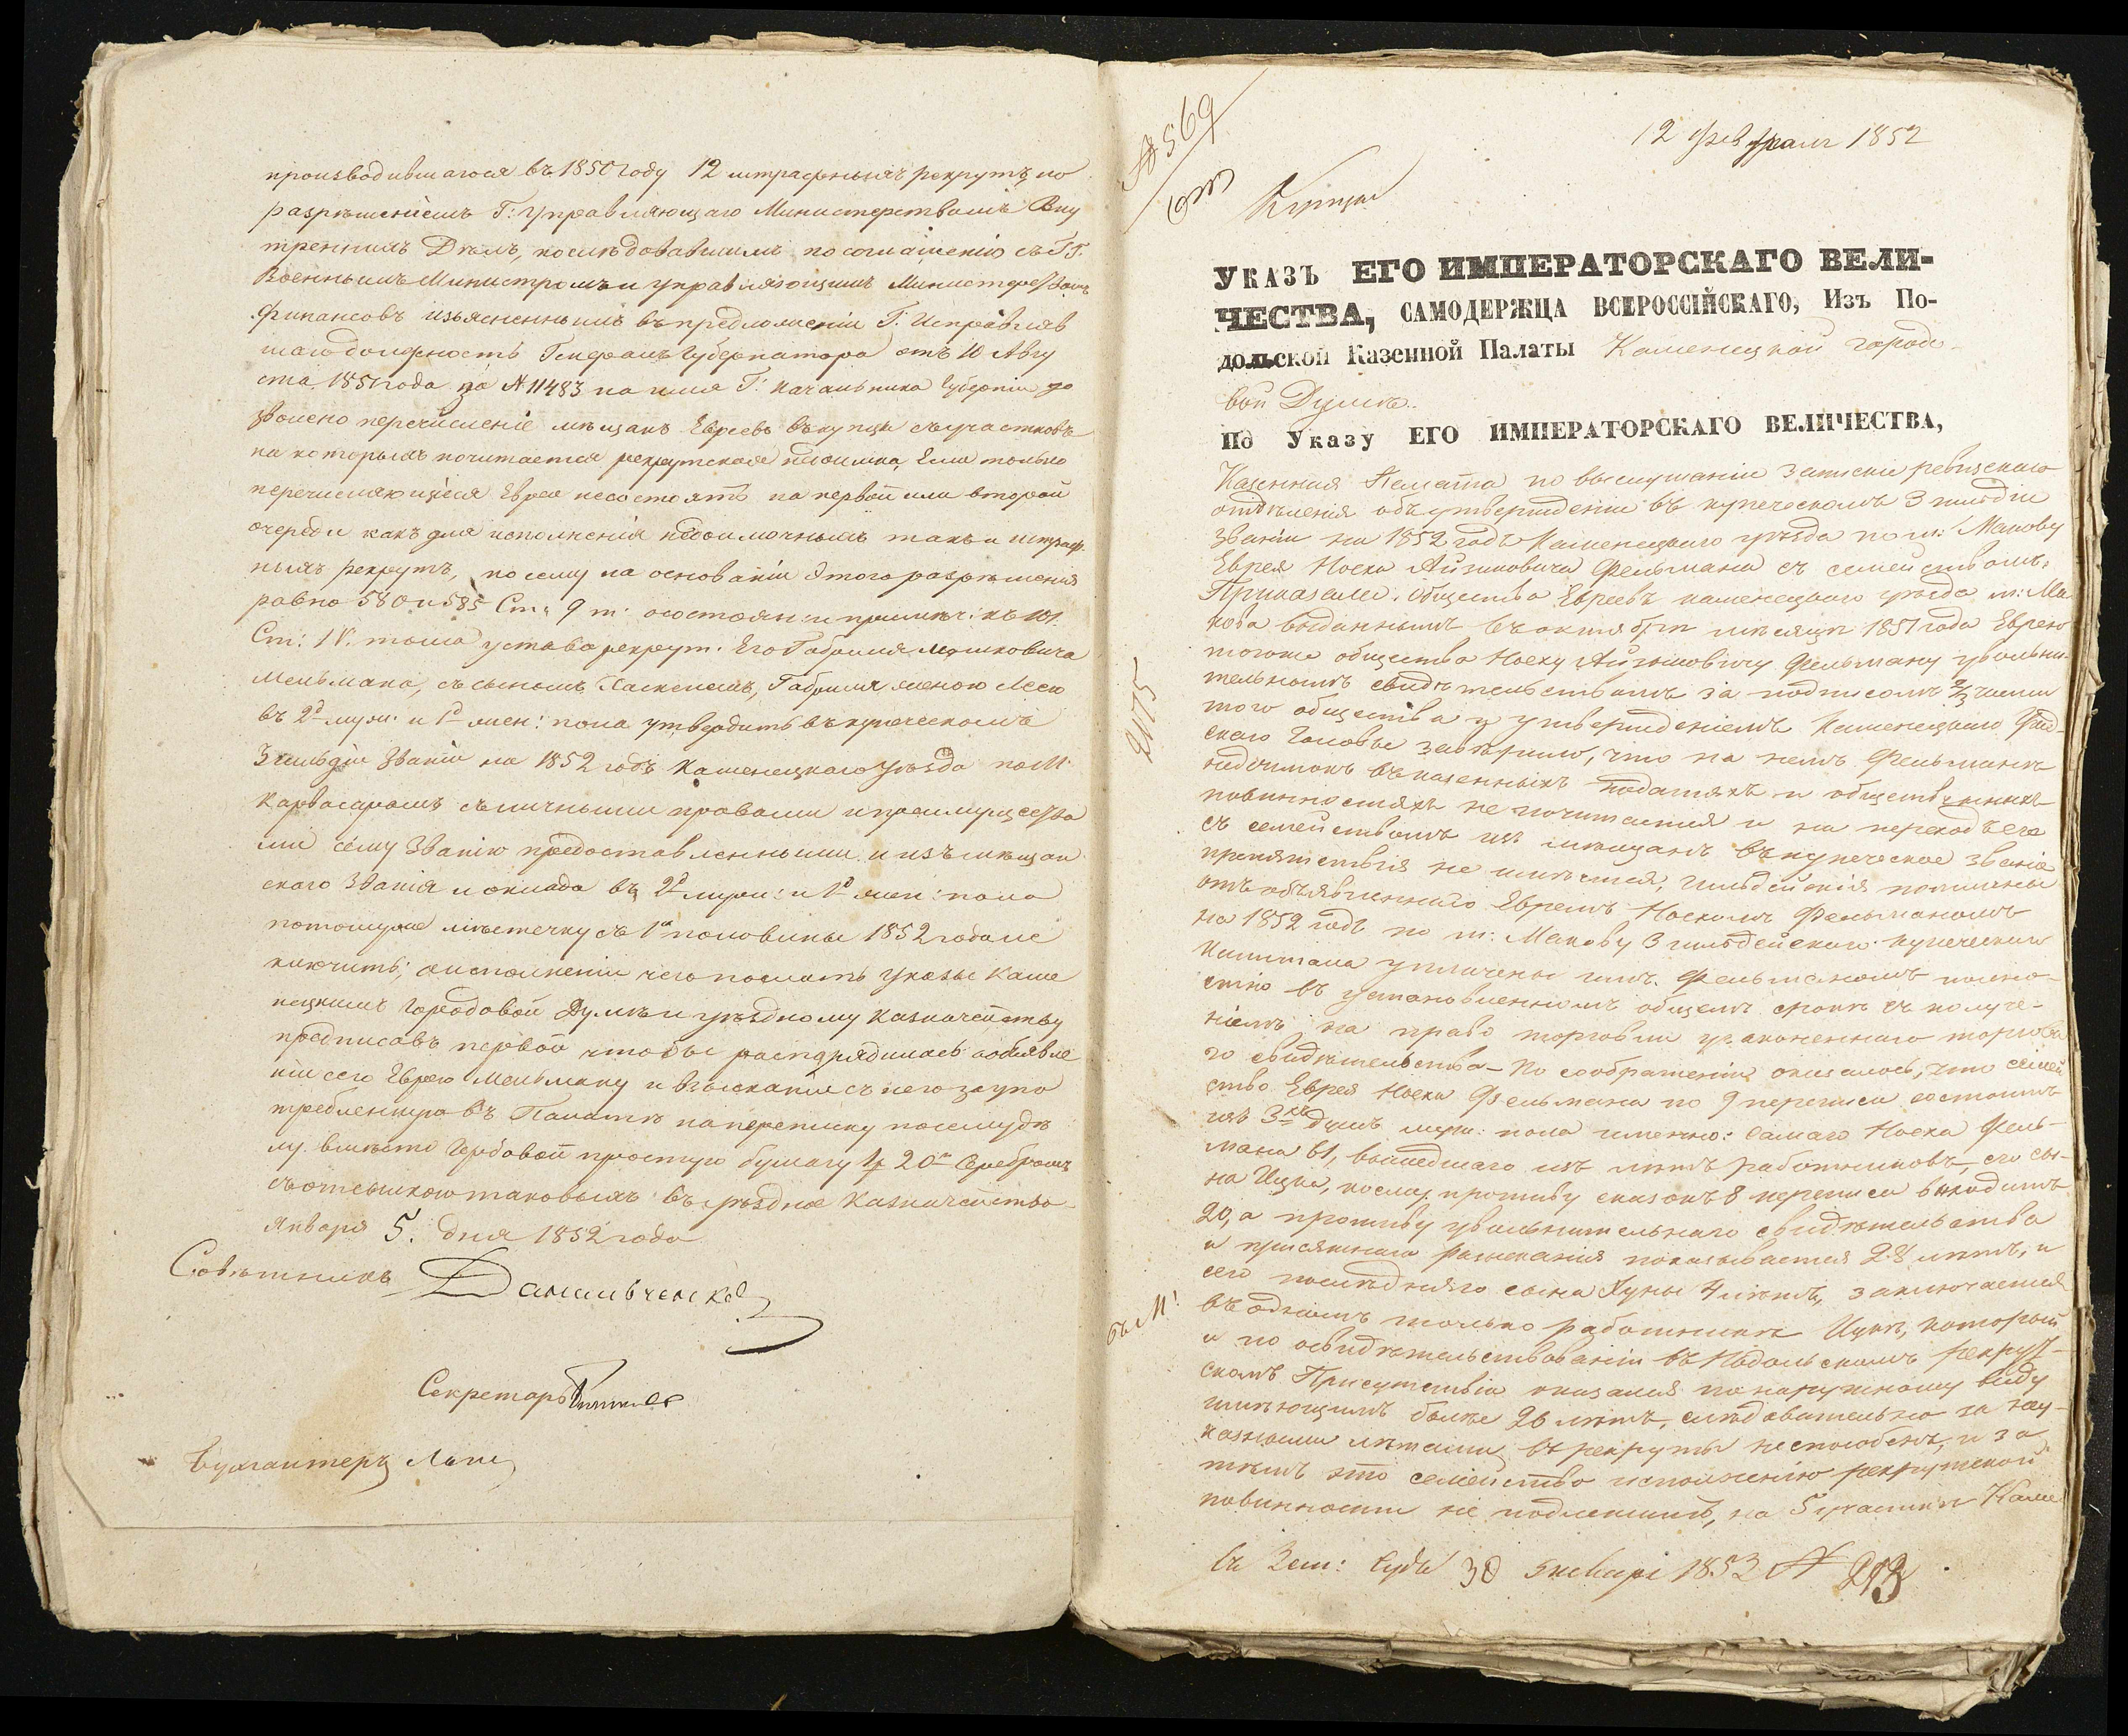 производившагося въ 1850 году 12 штрафныхъ рекрутъ, но
разрѣшеніемъ Г: Управляющаго Министерствомъ Вну
треннихъ Дѣлъ, послѣдовавшимъ по соглашенію съ ГГ.
Военнымъ Министромъ и управляющимъ Министерствомъ
Финансовъ изъясненнымъ въ предложеніи Г. Исправляв
шаго должность Генералъ Губернатора отъ 10 Авгу
ста 1851 года за № 11483 на имя Г: Начальника Губерніи до
зволено перечисленіе мѣщанъ Евреевъ въ купцы съ участковъ
на которыхъ почитается рекрутская недоимка, Если только
перечисляющіеся Евреи несостоятъ на первой или второй
очереди какъ для исполненія недоимочныхъ такъ и штраф
ныхъ рекрутъ, по сему на основаніи этого разрѣшенія
равно 580 и 585 Ст: 9 т: о состоян: и примѣч: къ 101
Ст: IV. тома устава рекрут. Его Габриля Мошковича
Мельмана, съ сыномъ Хаскелемъ, Габриля женою Лею
въ 2д муж: и 1й жен: пола утвердить въ купеческомъ
3 гильдіи званіи на 1852 годъ Каменецкаго Уѣзда по М:
Карвасарамъ съ личными правами и преимущества
ми сему Званію предоставленными и изъ мѣщан
скаго Званія и оклада въ 2д муж: и 1й жен: пола
потомуже мѣстечку съ 1й половины 1852 года ис
ключить; о исполненіи чего послать указы Каме
нецкимъ Городовой Думѣ и уѣздному Казначейству
предписавъ первой чтобы распорядилась объявле
ніи сего Еврею Мельману и взысканіи съ него за упо
требленную въ Палатѣ на переписку по сему дѣ
лу вмѣсто Гербовой простую бумагу 1р 20к Серебромъ
съ отсылкою таковыхъ въ уѣздное Казначейство
Января 5. дня 1852 года
Совѣтникъ Данильченко
Секретарь
Бухгалтеръ
№ 569
12 Февраля 1852
Купцы
Указъ ЕГО ИМПЕРАТОРСКАГО ВЕЛИ-
ЧЕСТВА, САМОДЕРЖЦА ВСЕРОССІЙСКАГО, Изъ По-
дольской Казенной Палаты Каменецкой городо-
вой Думѣ.
По Указу ЕГО ИМПЕРАТОРСКАГО ВЕЛИЧЕСТВА,
Казенная Палата по выслушаніи Записки ревизскаго
отдѣленія объ утвержденіи въ купеческомъ 3 гильдіи
званіи на 1852 годъ Каменецкаго уѣзда по м: Макову
Еврея Носка Айзиковича Фельмана съ семействомъ.
Приказали. Общество Евреевъ каменецкаго уѣзда м: Ма-
кова выданнымъ въ октябрѣ мѣсяцѣ 1851 года Еврею
тогоже общества Носку Айзиковичу Фельману увольни-
тельнымъ свидѣтельствомъ за подписомъ 2/3 части
того общества и утвержденіемъ Каменецкаго
скаго Головы завѣрило, что на немъ Фельманѣ
недоимокъ въ казенныхъ податяхъ и общественныхъ
повинностяхъ не почитается и на переходъ его
съ семействомъ изъ мѣщанъ въ купеческое званіе
препятствія не имѣется, гильдейскія повинны
отъ объявленнаго Евреемъ Носкомъ Фельманомъ
на 1852 годъ по м: Макову 3 гильдейскаго купеческаго
Капитала уплачены имъ Фельманомъ полно-
стію въ установленномъ общемъ срокѣ съ получе-
ніемъ на право торговли узаконеннаго торгова
го свидѣтельства – По соображеніи оказалось, что семей
ство Еврея Носка Фельмана по 9 переписи состоитъ
изъ 3хъ душъ муж: пола именно: самаго Носка Фель-
мана 61, вышедшаго изъ лѣтъ работниковъ, его сы-
на Ицка, коему противу сказокъ 8 переписи выходитъ
20, а противу увольнительнаго свидѣтельства
и присяжнаго разысканія показывается 28 лѣтъ, и
сего послѣдняго сына Хуны 4 лѣтъ, заключается
въ одномъ только работникѣ Ицкѣ, который
и по освидѣтельствованіи въ Подольскомъ рекрут-
скомъ Присутствіи оказался по наружному виду
имѣющимъ болѣе 26 лѣтъ, слѣдовательно за неу-
казными лѣтами въ рекруты неспособенъ, и за
тѣмъ это семейство исполненію рекрутской
повинности не подлежитъ, на 5 участкѣ Каме
2175
30 января 1852 № 213